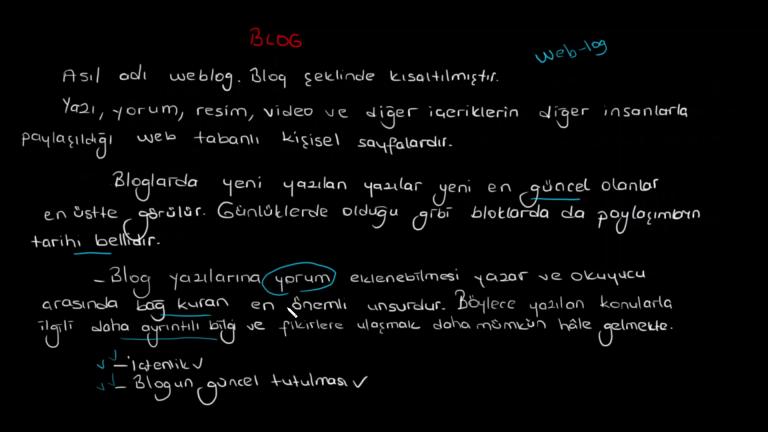 BLOG
web-log
Asıl adı weblog. Blog şeklinde kısaltılmıştır.
Yazı, yorum, resim, video ve diğer içeriklerin diğer insanlarla
paylaşıldığı web tabanlı kişisel sayfalardır.
Bloglarda yeni yazılan yazılar yeni en güncel olanlar
en üstte görülür. Günlüklerde olduğu gibi bloklarda da paylaşımların
tarihi bellidir.
- Blog yazılarına yorum eklenebilmesi yazar ve okuyucu
arasında bağ kuran en önemli unsurdur. Böylece yazılan konularla
ilgili daha ayrıntılı bilgi ve fikirlere ulaşmak daha mümkün hâle gelmekte.
- İçtenlik
- Blogun güncel tutulması